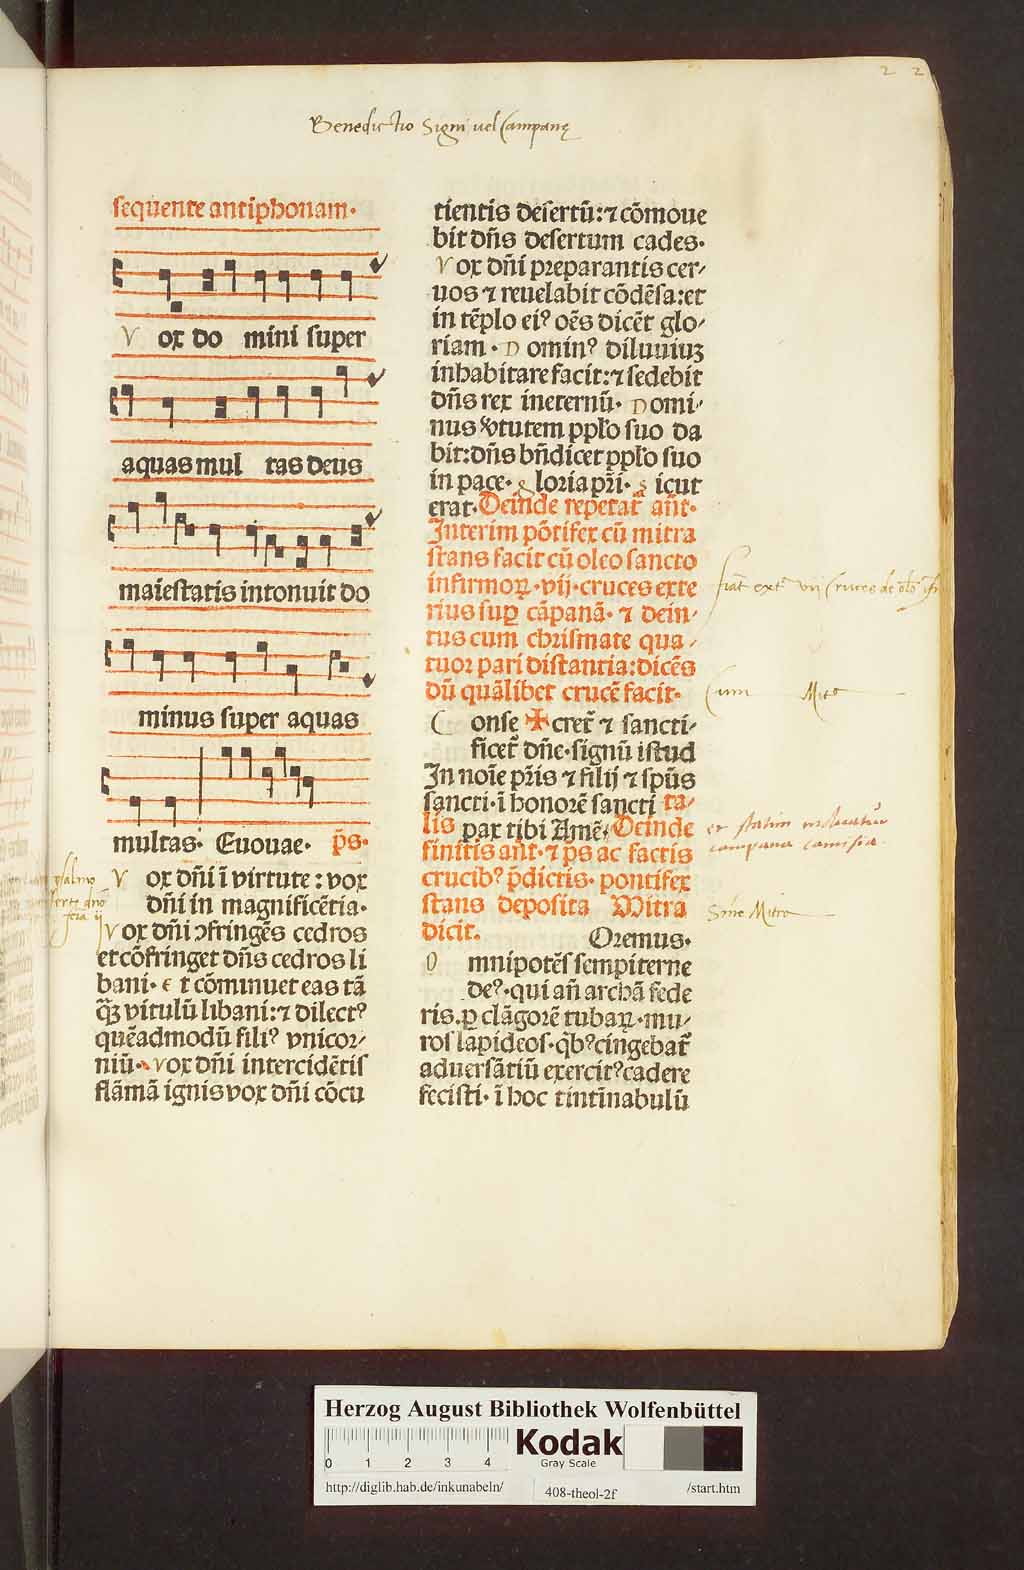 2 2
Benedictio Signi uel Campanę
sequente antiphonam·
V ox do mini super
aquas mul tas deus
maiestatis intonuit do
minus super aquas
multas· Euouae· p̄s·
V ox dñi ī virtute : vox
dñi in magnificētia·
Vox dñi ↄfringēs cedros
et cōfringet dñs cedros li
bani· et cōminuet eas tā
qꝫ vitulū libani:⁊ dilectꝰ
quēadmodū filiꝰ vnicor⸗
niū· vox dñi intercidētis
flāmā ignis vox dñi cōcu
psalmo
feria ij
tientis desertū:⁊ cōmoue
bit dñs desertum cades·
Vox dñi preparantis cer⸗
uos ⁊ reuelabit cōdēsa:et
in tēplo eiꝰ oēs dicēt glo⸗
riam· Dominꝰ diluuiuꝫ
inhabitare facit:⁊ sedebit
dñs rex ineternū· Domi⸗
nus v̓tutem pplo suo da
bit:dñs bñdicet pplo suo
in pace· gloria pr̄i· sicut
erat· Deinde repetat̄ añt·
Interim pōtifex cū mitra
stans facit cū oleo sancto
infirmoꝝ ·vij·cruces exte
rius suꝑ cāpanā· ⁊ dein⸗
tus cum chrismate qua⸗
tuor pari distantia:dicēs
dū quālibet crucē facit·
Conse ✠ cret̄ ⁊ sancti⸗
ficet̄ dñe·signū istud
In noīe pr̄is ⁊ filij ⁊ spūs
sancti·ī honorē sancti ta⸗
lis pax tibi Amē· Deinde
finitis añt·⁊ ps ac factis
crucibꝰ p̄dictis· pontifex
stans deposita Mitra
dicit. Oremus·
Omnipotēs sempiterne
deꝰ·qui añ archā fede
ris.ꝑ clāgorē tubaꝝ·mu⸗
ros lapideos·qbꝰcingebat̄
aduersātiū exercitꝰcadere
fecisti·ī hoc tintinabulū
fiāt ext̄ vij Cruces de olō
Cum Mitᵃ
et statim induatur
campana camisia.
Sine Mitra
Herzog August Bibliothek Wolfenbüttel
0 1 2 3 4
Kodak
Gray Scale
http://diglib.hab.de/inkunabeln/
408-theol-2f
/start.htm